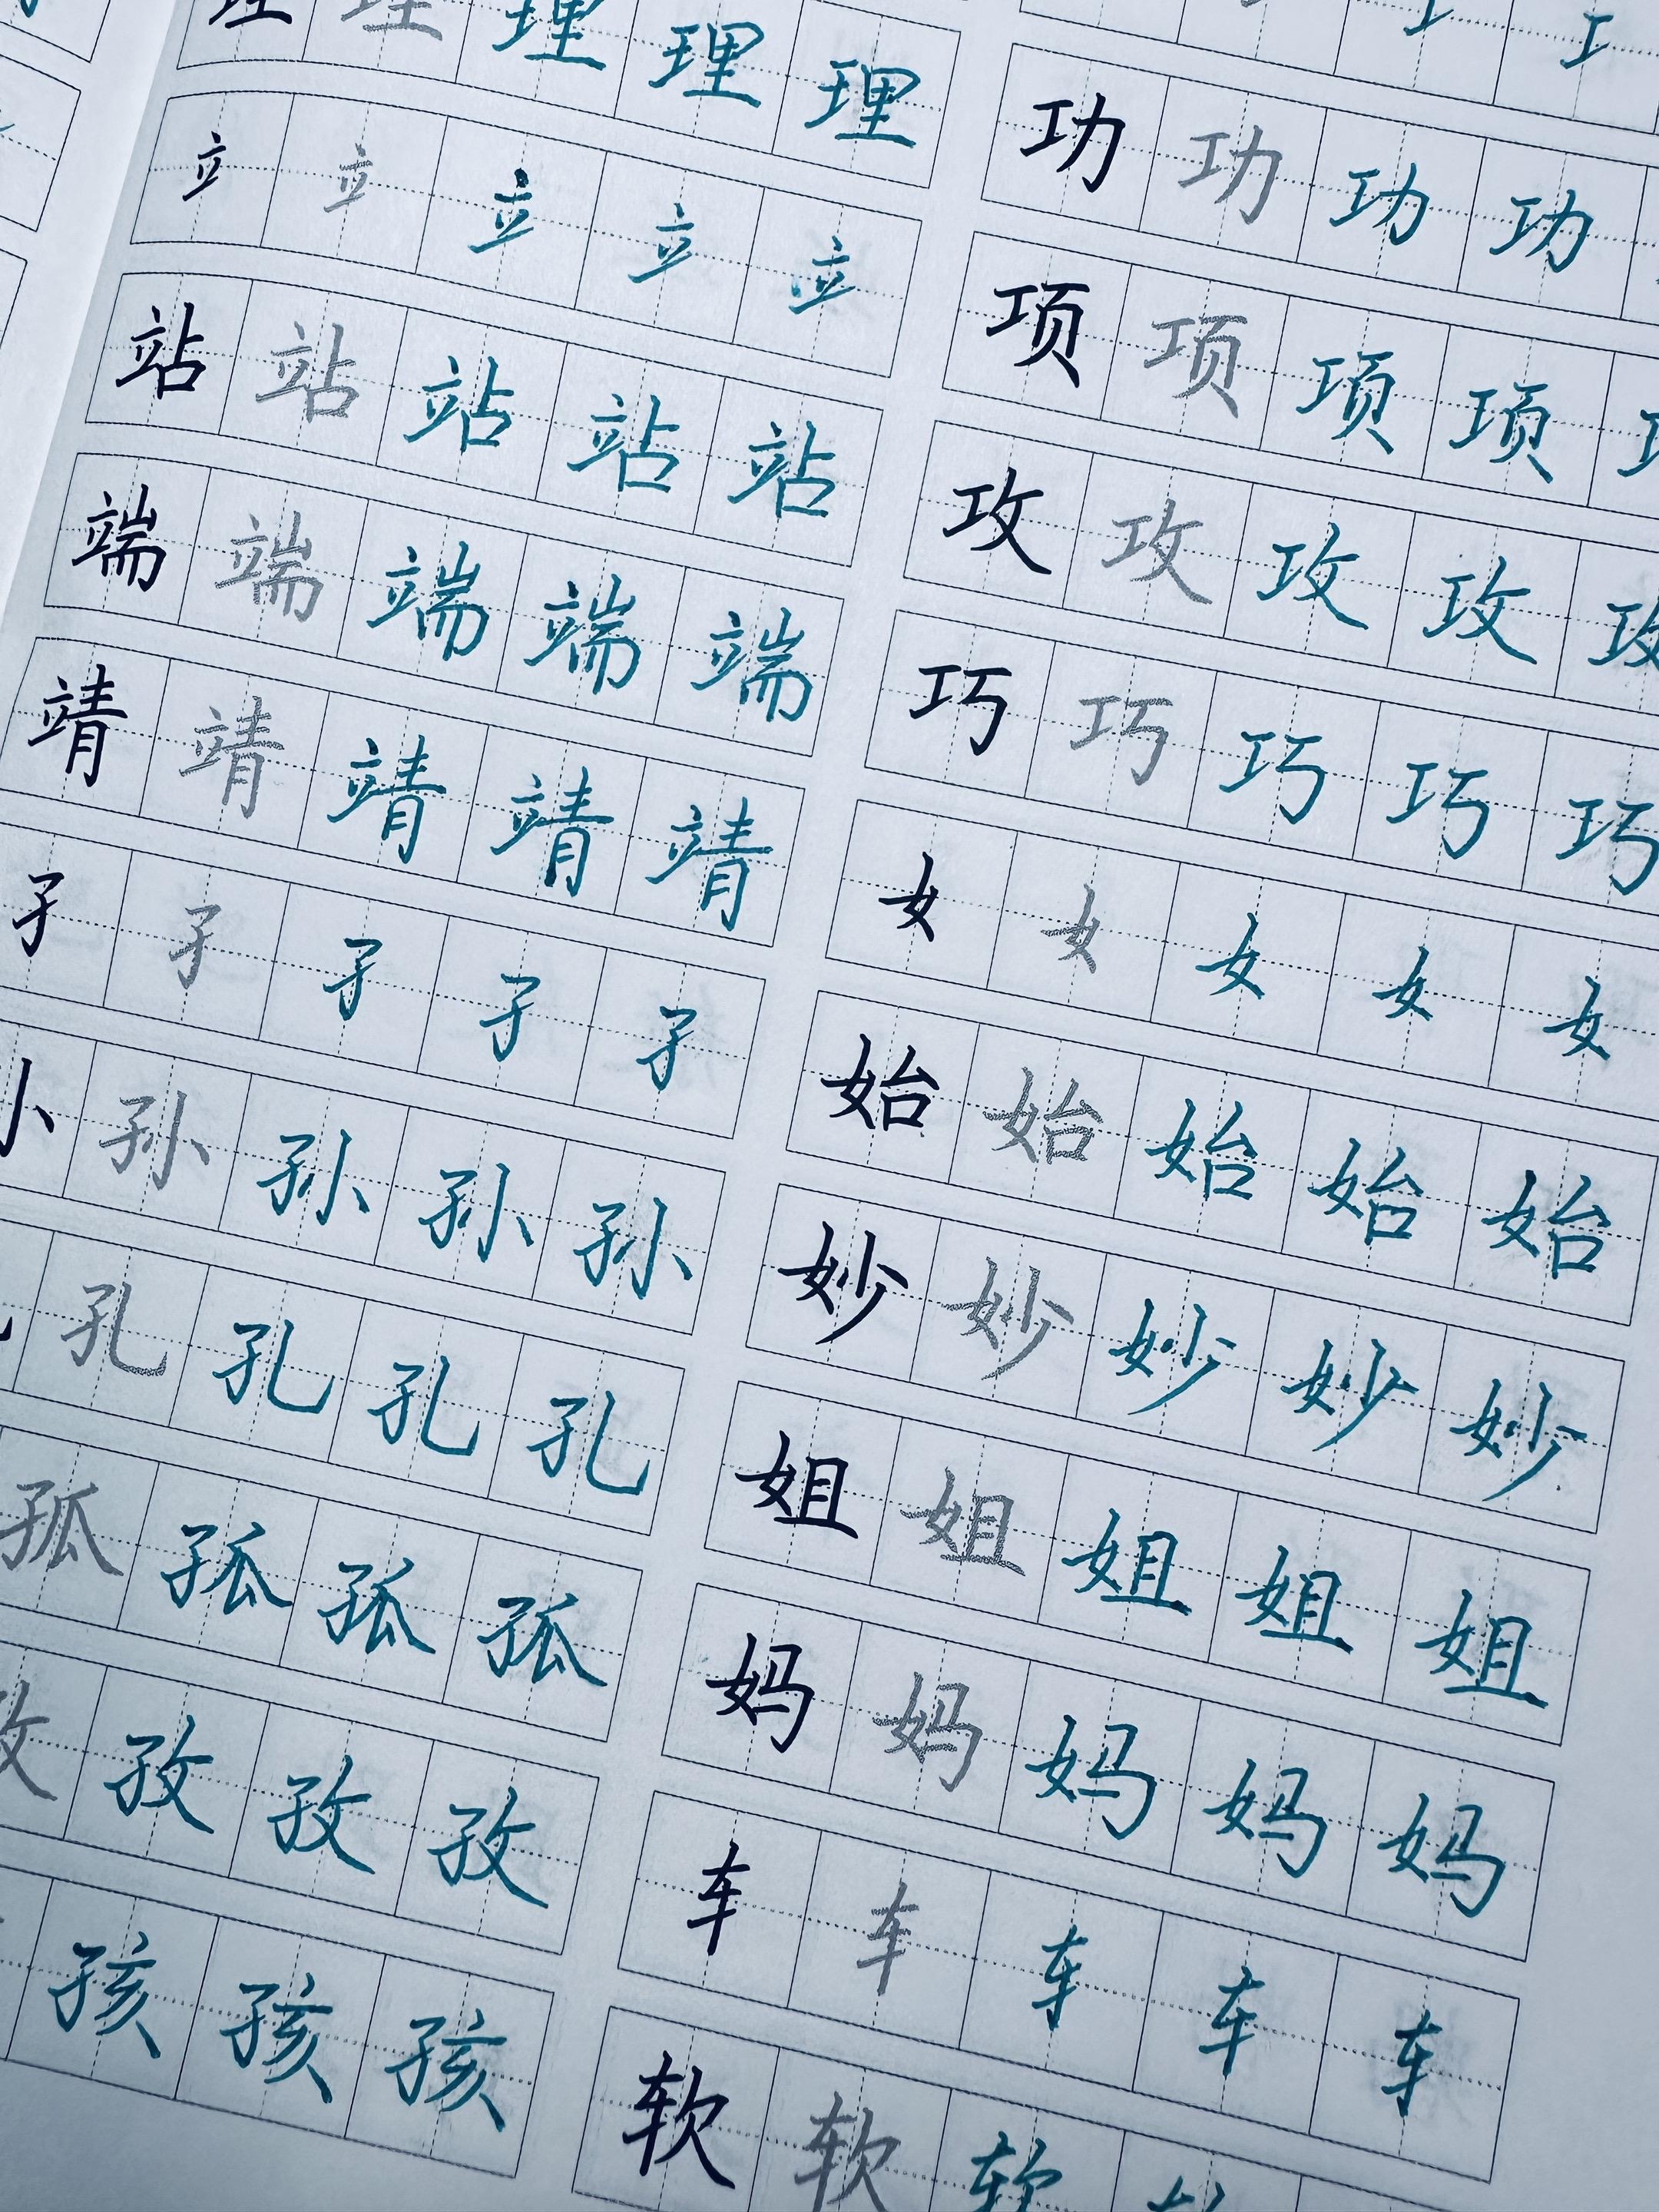 理 理 理 理 理
立 立 立 立 立
站 站 站 站 站
端 端 端 端 端
靖 靖 靖 靖 靖
孑 孑 孑 孑 孑
孙 孙 孙 孙
孔 孔 孔 孔
孤 孤 孤 孤
孜 孜 孜
孩 孩 孩
工
功 功 功 功
项 项 项 项
攻 攻 攻 攻 攻
巧 巧 巧 巧 巧
女 女 女 女 女
始 始 始 始 始
妙 妙 妙 妙 妙
姐 姐 姐 姐 姐
妈 妈 妈 妈 妈
车 车 车 车 车
软 软 软